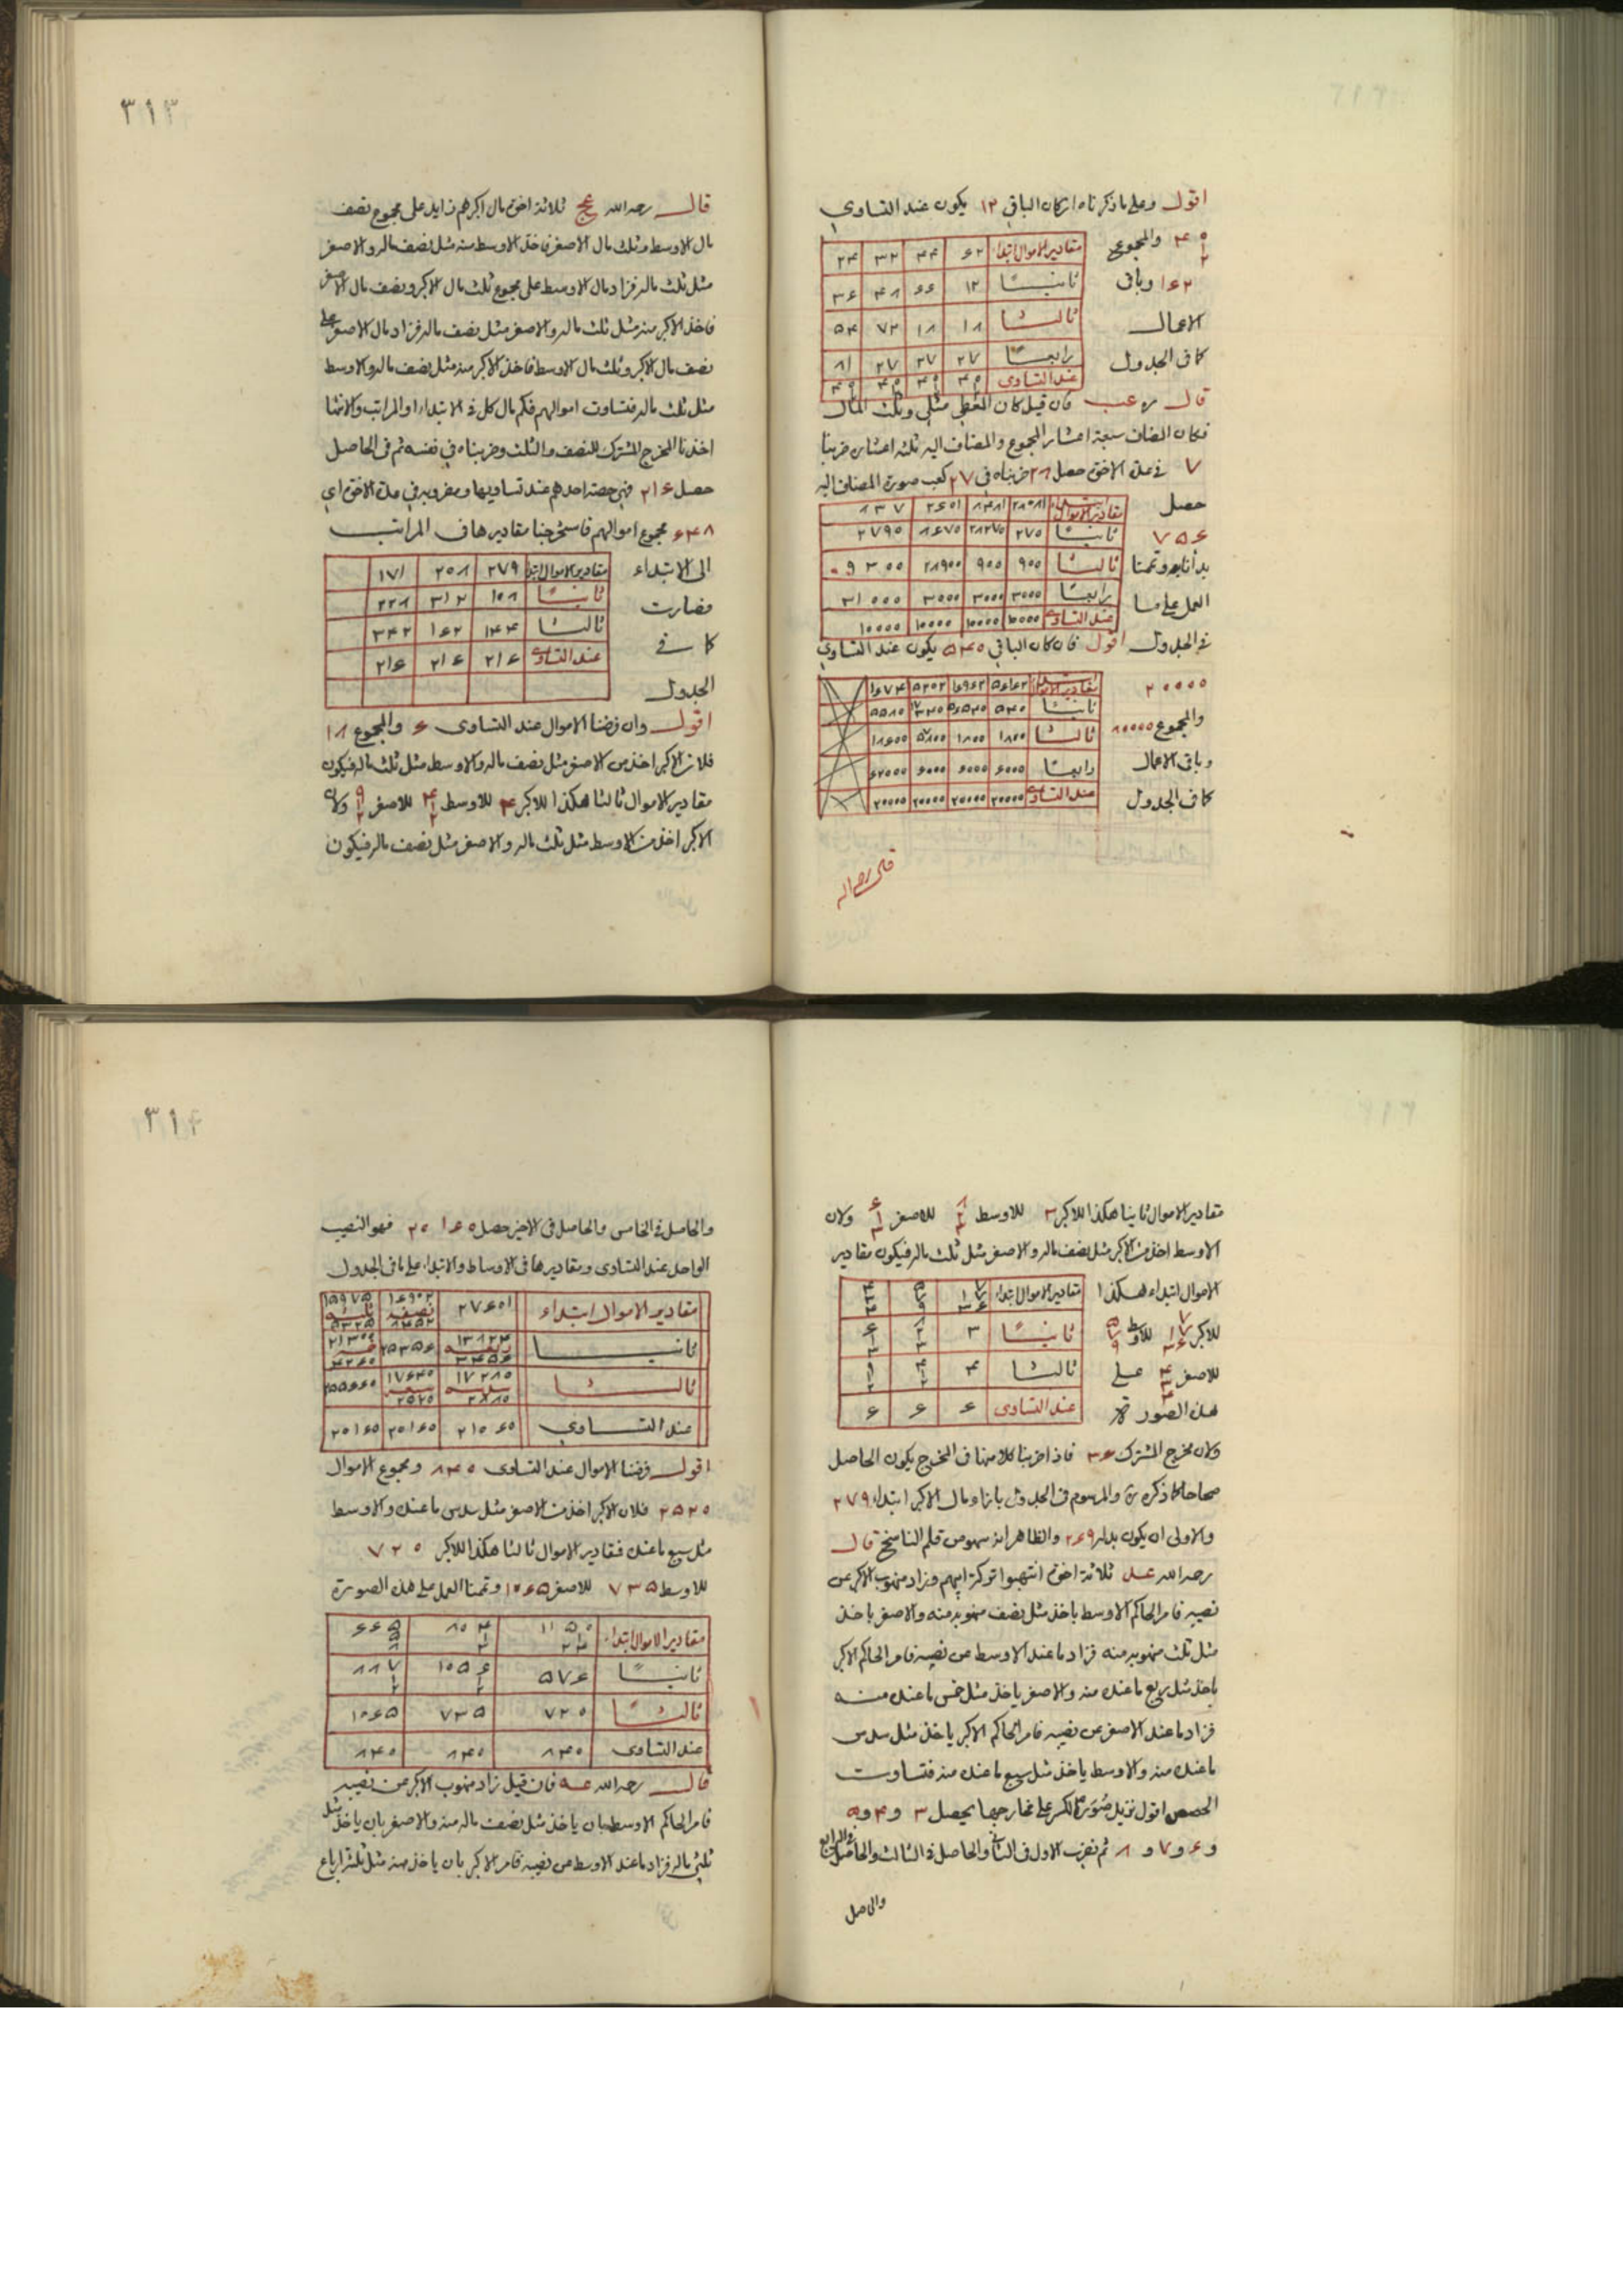 اقول وعلى ما ذكرناه ان كان الباقى ١٢ يكون عند التساوي
والمجموع
١٦٢ وباقى
الاعمال
كما فى الجدول
مقادير الاموال ابتداء ٦٢ ٤٤ ٣٢ ٢٤
ثانيا ١٢ ٦٦ ٤٨ ٣٦
ثالثا ١٨ ١٨ ٧٢ ٥٤
رابعا ٢٧ ٢٧ ٢٧ ٨١
عند التساوى
قال ره عب فان قيل كان المُعْطى مثلى وثلث المال
فكان المضاف سبعة اعشار المجموع والمضاف اليه ثلثة اعشاره ضربنا
٧ فى عدة الاخوة حصل ٢٨ ضربناه فى ٢٧ كعب صورة المضاف اليه
حصل
٧٥٦
بدأنا به وتممنا
العمل على ما
فى الجدول
ثالثا ٩٠٠ ٩٠٠ ٢٨٩٠٠ ٩٣٠٠
رابعا ٣٠٠٠ ٣٠٠٠ ٣٠٠٠ ٣١٠٠٠
عند التساوى ١٠٠٠٠ ١٠٠٠٠ ١٠٠٠٠ ١٠٠٠٠
اقول فان كان الباقى ٥٤٠ يكون عند التساوي
٢٠٠٠٠
والمجموع ٨٠٠٠٠
وباقى الاعمال
كما فى الجدول
رابعا ٦٠٠٠ ٦٠٠٠ ٦٠٠٠ ٦٢٠٠٠
عند التساوى ٢٠٠٠٠ ٢٠٠٠٠ ٢٠٠٠٠ ٢٠٠٠٠
٣١٣
قال رحمه الله عج ثلاثة اخوة مال اكبرهم زايد على مجموع نصف
مال الاوسط وثلث مال الاصغر فاخذ الاوسط منه مثل نصف ماله والاصغر
مثل ثلث ماله فزاد مال الاوسط على مجموع ثلث مال الاكبر ونصف مال الاصغر
فاخذ الاكبر منه مثل ثلث ماله والاصغر مثل نصف ماله فزاد مال الاصغر على
نصف مال الاكبر وثلث مال الاوسط فاخذ الاكبر منه مثل نصف ماله والاوسط
مثل ثلث ماله فتساوت اموالهم فكم مال كل فى الابتداء او المراتب والانتها
اخذنا المخرج المشترك للنصف والثلث وضربناه فى نفسه ثم فى الحاصل
حصل ٢١٦ فهى حصة احدهم عند تساويها ومضروبه فى عدة الاخوة اي
٦٤٨ مجموع اموالهم فاستخرجنا مقاديرها فى المراتب
الى الابتداء
فصارت
كما فى
الجدول
مقادير الاموال ابتداء ٢٧٩ ٢٠٨ ١٧١
ثانيا ١٠٨ ٣١٢ ٢٢٨
ثالثا ١٤٤ ١٦٢ ٣٤٢
عند التساوى ٢١٦ ٢١٦ ٢١٦
اقول وان فرضنا الاموال عند التساوى ٦ والمجموع ١٨
فلان الاكبر اخذ من الاصغر مثل نصف ماله والاوسط مثل ثلث ماله فيكون
مقادير الاموال ثالثا هكذا للاكبر ٤ للاوسط ٤ ١/٢ للاصغر ٩ ١/٢ ولان
الاكبر اخذ من الاوسط مثل ثلث ماله والاصغر مثل نصف ماله فيكون
مقادير الاموال ثانيا هكذا للاكبر ٣ للاوسط للاصغر ولان
الاوسط اخذ من الاكبر مثل نصف ماله والاصغر مثل ثلث ماله فيكون مقادير
الاموال ابتداء هكذا
للاكبر للاوسط
للاصغر على
هذه الصورة
مقادير الاموال ابتداء
ثانيا ٣
ثالثا ٤
عند التساوى ٦ ٦ ٦
ولان مخرج المشترك ٣٦ فاذا ضربنا كلا منها فى المخرج يكون الحاصل
صحاحا كما ذكره والمرسوم فى الجدول بازاء مال الاكبر ابتداء ٢٧٩
والاولى ان يكون بدله ٢٦٩ والظاهر انه سهو من قلم الناسخ قال
رحمه الله عد ثلاثة اخوة انتهبوا تركة ابيهم وزاد منهوب الاكبر عن
نصيبه فامر الحاكم الاوسط باخذ مثل نصف منهوبه منه والاصغر باخذ
مثل ثلث منهوبه منه فزاد ما عند الاوسط عن نصيبه فامر الحاكم الاكبر
باخذ مثل ربع ما عنده منه والاصغر ياخذ مثل خمس ما عنده منه
فزاد ما عند الاصغر عن نصيبه فامر الحاكم الاكبر ياخذ مثل سدس
ما عنده منه والاوسط ياخذ مثل سبع ما عنده منه فتساوت
الحصص اقول نزيل صُوَر الكسر على مخارجها يحصل ٣ و ٤ و ٥
و ٦ و ٧ و ٨ ثم نضرب الاول فى الثانى والحاصل فى الثالث والحاصل فى الرابع
والحاصل
٣١٤
والحاصل فى الخامس والحاصل فى الاخير حصل ٢٠١٦٠ فهو النصيب
الواحد عند التساوى ومقاديرها فى الاوساط والابتداء على ما فى الجدول
مقادير الاموال ابتداء ٢٧٦٠١
ثانيا ١٣٨٢٤ ٢٥٣٥٦
ثالثا ١٧٢٨٠ ١٧٦٤٠
عند التساوي ٢١٠٦٠ ٢٠١٦٠ ٢٠١٦٠
اقول فرضنا الاموال عند التساوى ٨٤٠ ومجموع الاموال
٢٥٢٠ فلان الاكبر اخذ من الاصغر مثل سدس ما عنده والاوسط
مثل سبع ما عنده فمقادير الاموال ثالثا هكذا للاكبر ٧٢٠
للاوسط ٧٣٥ للاصغر ١٠٦٥ وتممنا العمل على هذه الصورة
مقادير الاموال ابتداء
ثانيا ٥٧٦ ١٠٥٦ ٨٨٧
ثالثا ٧٢٠ ٧٣٥ ١٠٦٥
عند التساوى ٨٤٠ ٨٤٠ ٨٤٠
قال رحمه الله عه فان قيل زاد منهوب الاكبر من نصيبه
فامر الحاكم الاوسط بان ياخذ مثل نصف ماله منه والاصغر بان ياخذ مثل
ثلثى ماله فزاد ما عند الاوسط عن نصيبه فامر الاكبر بان ياخذ منه مثل ثلثة ارباع